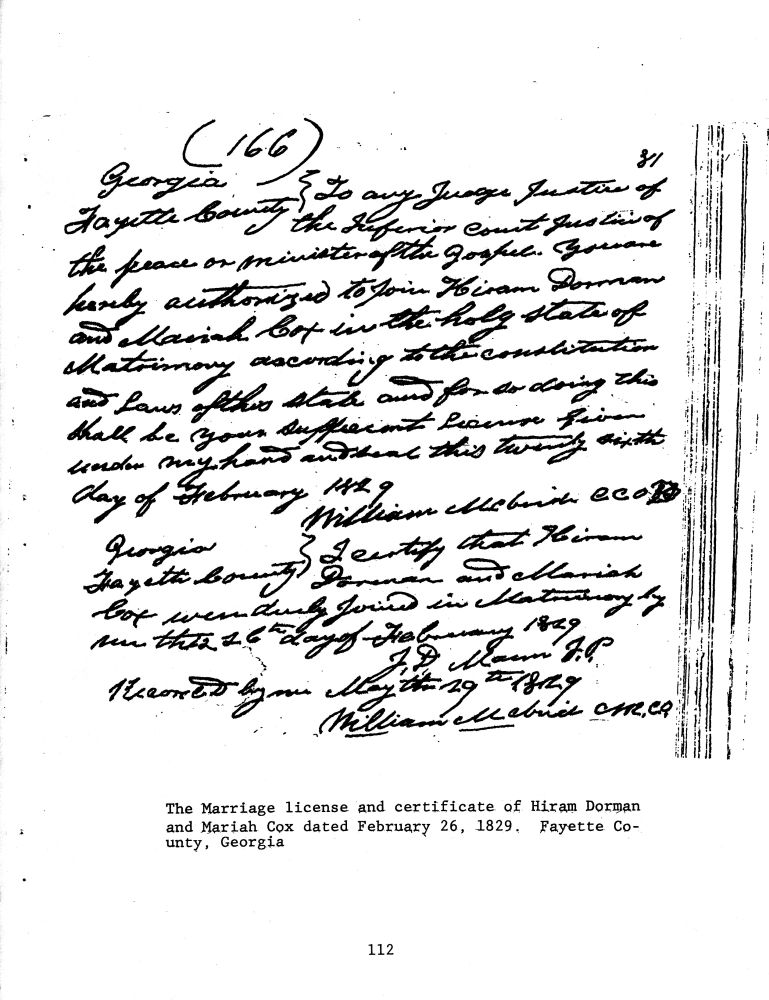 (166)
31
Georgia } To any Judge Justice of
Fayette County } the Inferior Court Justice of
the peace or minister of the Gospel. You are
hereby authorized to join Hiram Dorman
and Mariah Cox in the holy state of
Matrimony according to the constitution
and Laws of this state and for so doing this
shall be your sufficient License Given
under my hand and seal this twenty sixth
day of February 1829
William Mcbride CCO
Georgia } I certify that Hiram
Fayette County } Dorman and Mariah
Cox were duly joined in Matrimony by
me this 26th day of February 1829
J.D Mann J.P
Recorded by me May the 29th 1829
William Mcbride
The Marriage license and certificate of Hiram Dorman
and Mariah Cox dated February 26, 1829. Fayette Co-
unty, Georgia
112